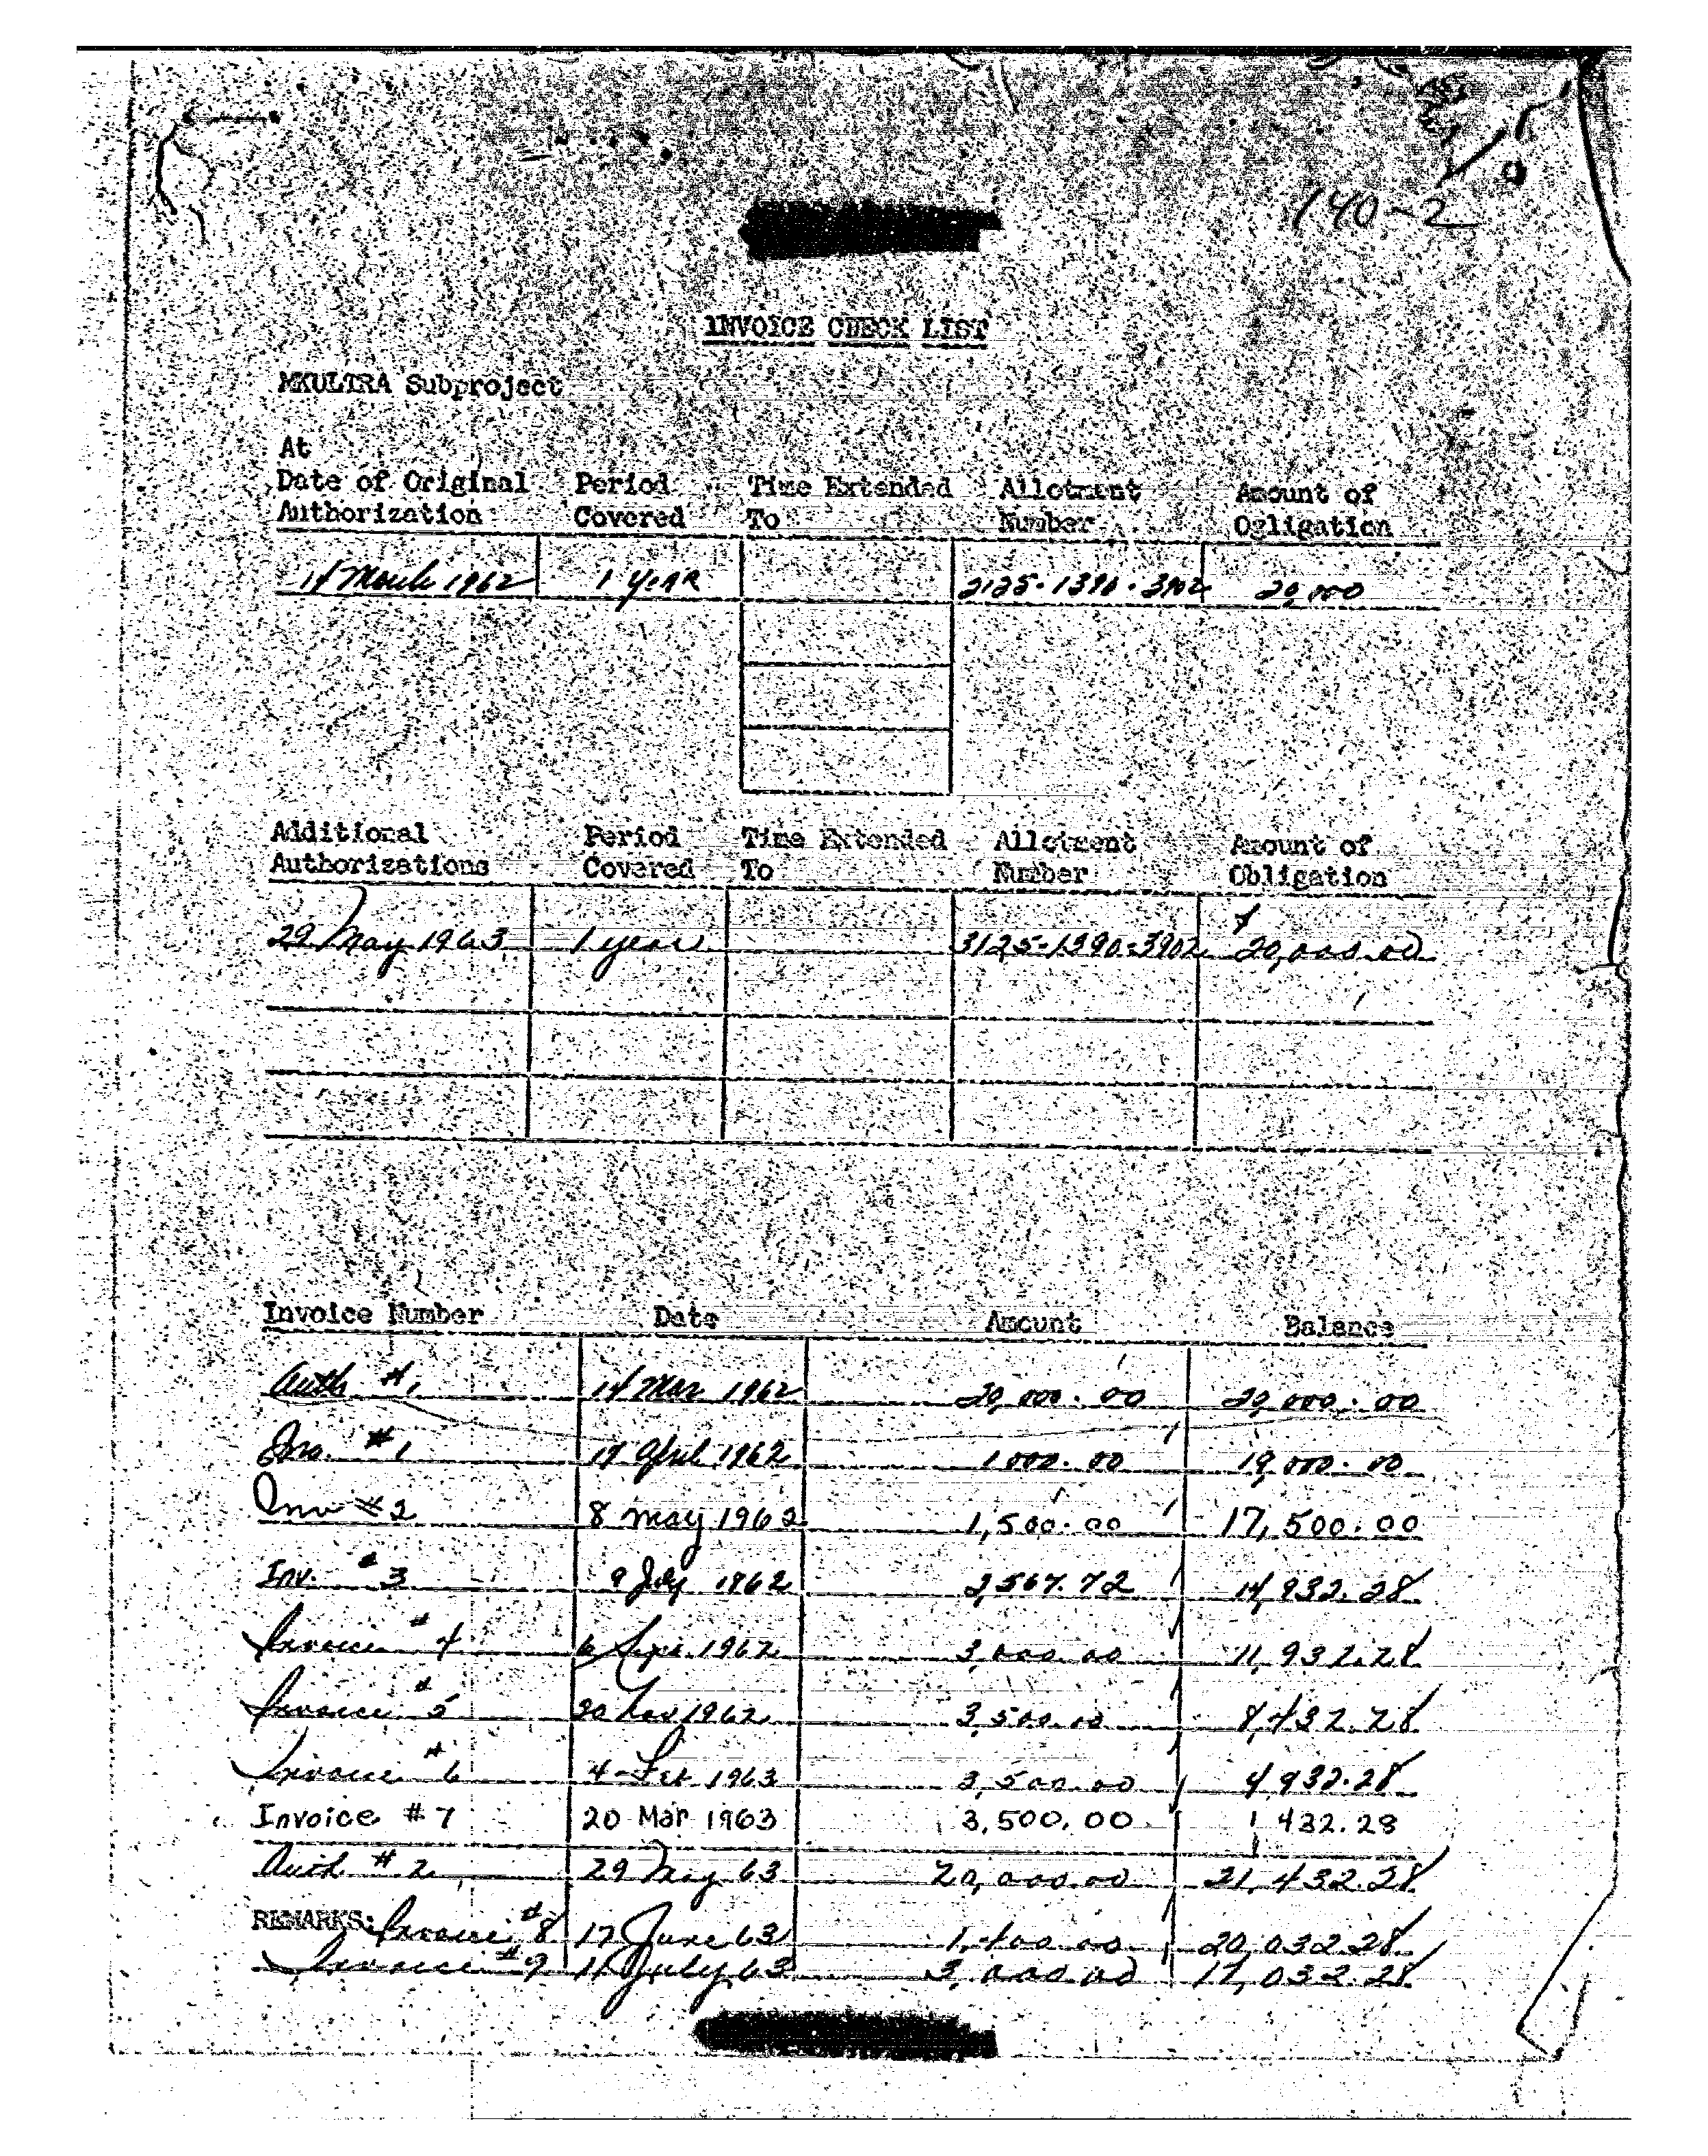 140-2
INVOICE CHECK LIST
MKULTRA Subproject
At
Date of Original Authorization Period Covered Time Extended To Allotment Number Amount of Ogligation
14 March 1962 1 year 2125-1390-3902 20,000
Additional Authorizations Period Covered Time Extended To Allotment Number Amount of Obligation
29 May 1963 1 year 3125-1390-3902 20,000.00
Invoice Number Date Amount Balance
Auth #1 14 Mar 1962 20,000.00 20,000.00
Inv. #1 April 1962 1000.00 19,000.00
Inv #2 8 May 1962 1,500.00 17,500.00
Inv. #3 9 July 1962 2,567.72 14,932.28
Invoice #4 6 Sept 1962 3,000.00 11,932.28
Invoice #5 20 Nov 1962 3,500.00 8,432.28
Invoice #6 4 Feb 1963 3,500.00 4,932.28
Invoice #7 20 Mar 1963 3,500.00 1,432.28
Auth #2 29 May 63 20,000.00 21,432.28
REMARKS: Invoice #8 17 June 63 1,400.00 20,032.28
Invoice #9 11 July 63 3,000.00 17,032.28